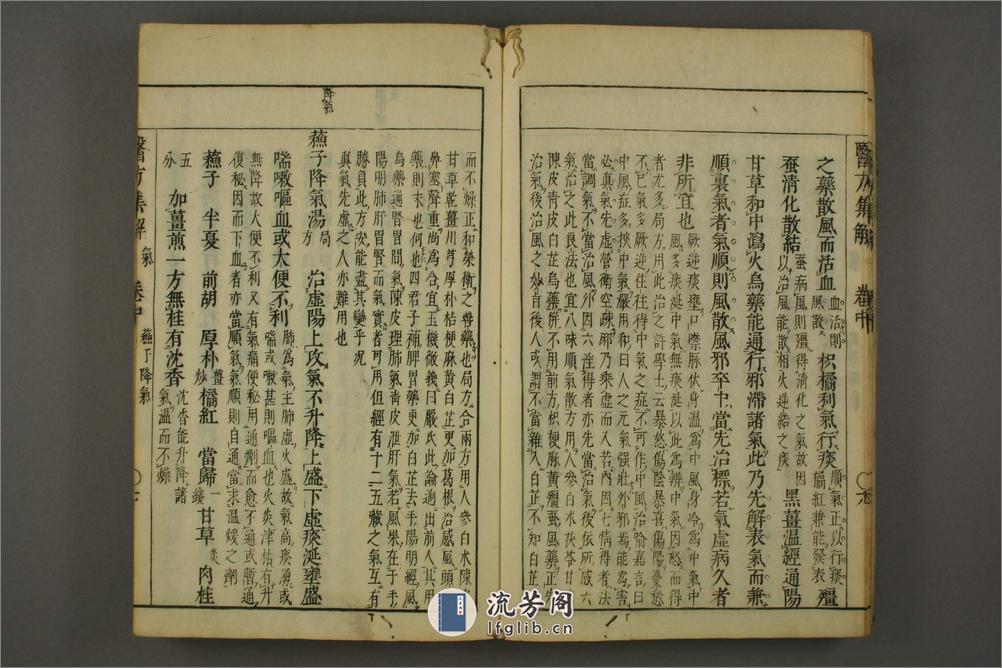 醫方集解 卷中
之藥散風而活血血治則風散枳橘利氣行痰順氣正以行痰橘紅兼能發表殭
蚕清化散結蚕病風則殭得清化之氣故因以治風能散相火逆結之痰黑薑溫經通陽
甘草和中瀉火烏藥能通行邪滯諸氣此乃先解表氣而兼
順裏氣者氣順則風散風邪卒中當先治標若氣虛病久者
非所宜也厥逆痰壅口尸厥脉伏身溫爲中風身冷爲中氣中風多痰涎中氣無痰涎以此爲辨中氣因怒而得
者尤多局方用此治之許學士云暴怒傷陰暴喜傷陽憂愁
不已氣多厥逆往往得中氣之症不可作中風治喻嘉言曰
中風症多挾中氣嚴用和曰人之元氣強壯外邪焉能爲害
必真氣先虛營衛空疎邪乃乘虛而入若內因七情得者法
當調氣不當治風外因六淫得者亦先當治氣後依所感六
氣治之此良法也宜八味順氣散方用人參白术茯苓甘草
陳皮青皮白芷烏藥所以不用前方枳梗麻黃殭蚕風藥正先
治氣氣後治風之妙旨後人或謂不當雜入白芷不知白芷
而不燥正和榮衛之善藥也局方合兩方用人參白术陳皮
甘草乾薑川芎厚朴桔梗麻黃白芷更加葛根治感風頭疼
鼻塞聲重尚爲合宜玉機微義曰嚴氏此論適出前人其用
藥則未也何也四君子補脾胃藥更加白芷去手陽明經風
烏藥通腎胃間氣陳皮理肺氣青皮泄肝氣若風果在于手
陽明肺肝胃腎而氣實者可用但經有十二五臟之氣互有
勝負此方湊能盡其變乎況
真氣先虛之人亦難用也
降氣
蘇子降氣湯局方 治虛陽上攻氣不升降上盛下虛痰涎壅盛
喘嗽嘔血或大便不利肺爲氣主肺虛火盛故氣高痰湧或喘或嗽甚則嘔血也火炎津枯有升
無降故大便不利又有氣痛便秘用通劑而愈不通或暫通
復秘因而下血者亦當順氣氣順則自通當求溫煖之劑
蘇子 半夏 前胡 厚朴薑炒 橘紅 當歸一錢 甘草炙 肉桂
五分 加薑煎一方無桂有沈香沈香能升降諸氣溫而不燥
醫方集解 氣 卷中 蘇子降氣
流芳阁
lfglib.cn